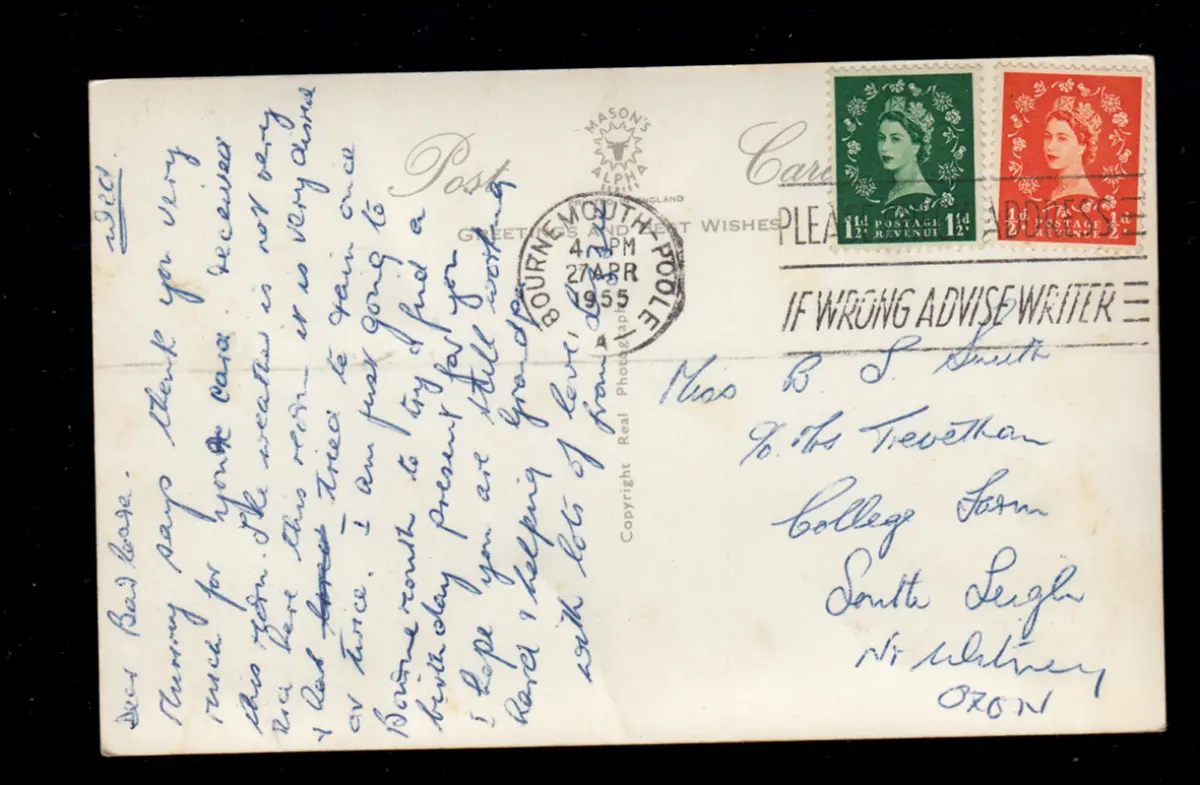 Wed.
Dear Barbara.
Mummy says thank you very
much for your card received
this morn. The weather is not very
nice here this morn it is very dull
& has tried to rain once
or twice. I am just going to
Bournemouth to try & find a
birthday present for you
I hope you are still working
hard & helping Grandpa
with lots of love
from
Post Card
MASON'S
ALPHA
SERIES
ENGLAND
GREETINGS AND BEST WISHES
Copyright Real Photograph
BOURNEMOUTH-POOLE
4 PM
27 APR
1955
A
1½d. POSTAGE REVENUE 1½d.
½d. POSTAGE REVENUE ½d.
PLEA ADDRESS
IF WRONG ADVISE WRITER
Miss B J Smith
c/o Mrs Trevethan
College Farm
South Leigh
Nr Witney
OXON